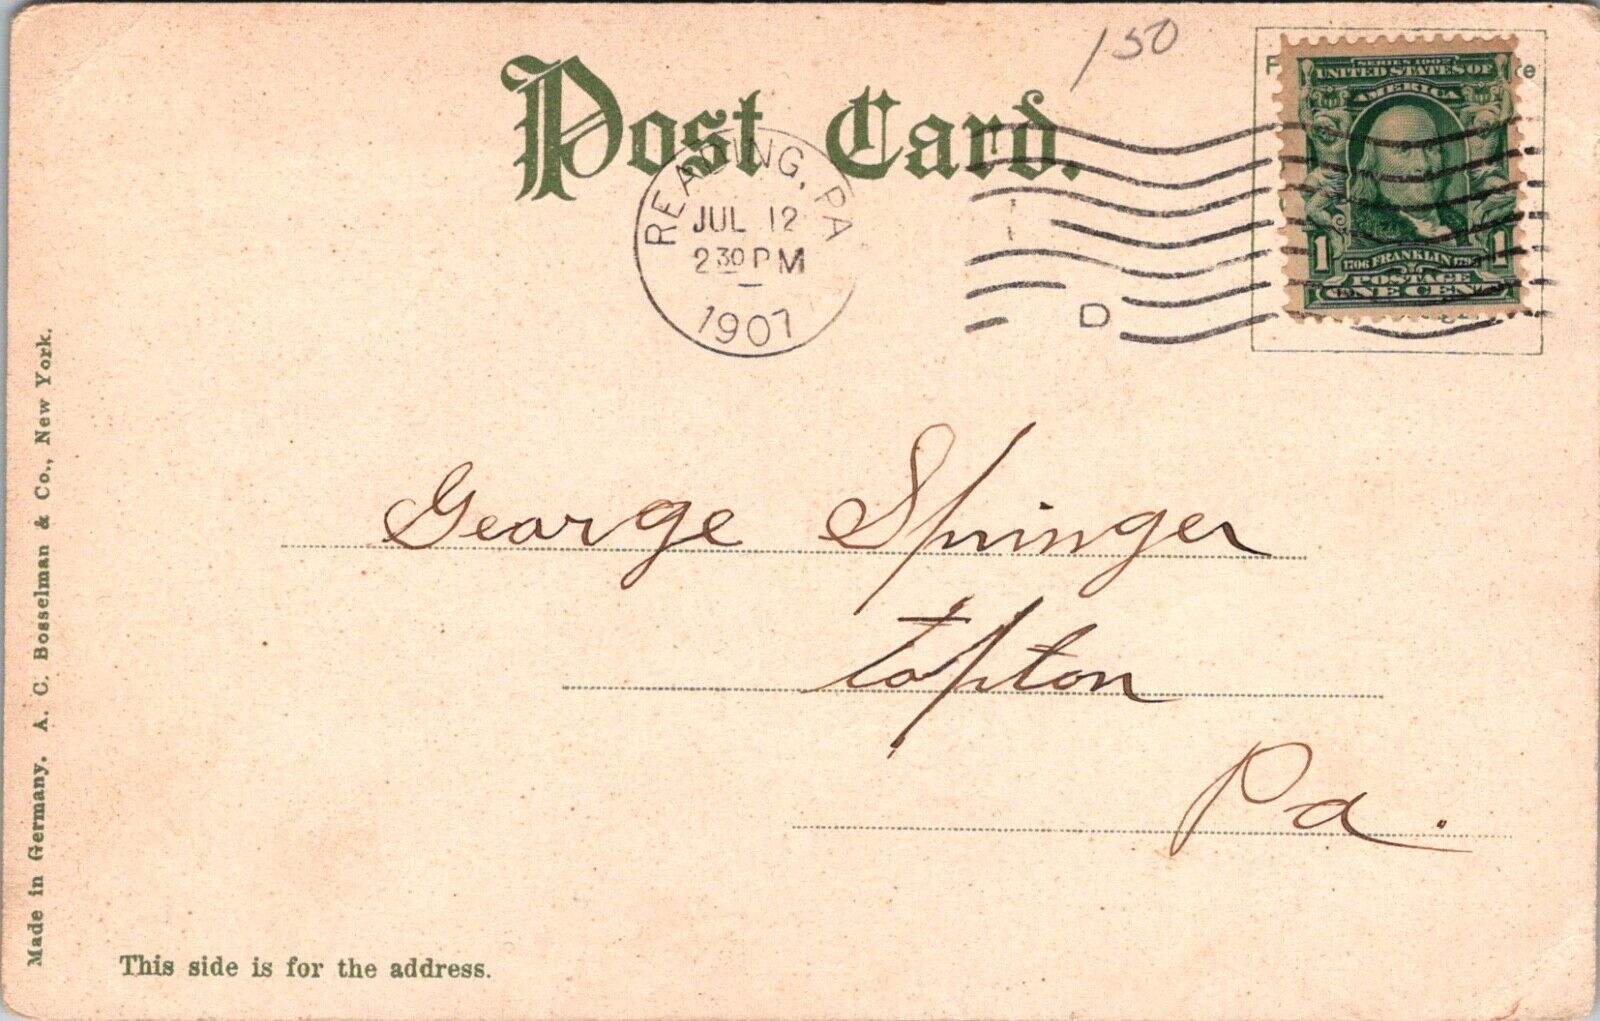 150
Post Card.
READING, PA
JUL 12
2 30 PM
1907
D
SERIES 1902
UNITED STATES OF
AMERICA
1 1
1706 FRANKLIN 1790
POSTAGE
ONE CENT
George Springer
Topton
Pa.
Made in Germany. A. C. Bosselman & Co., New York.
This side is for the address.